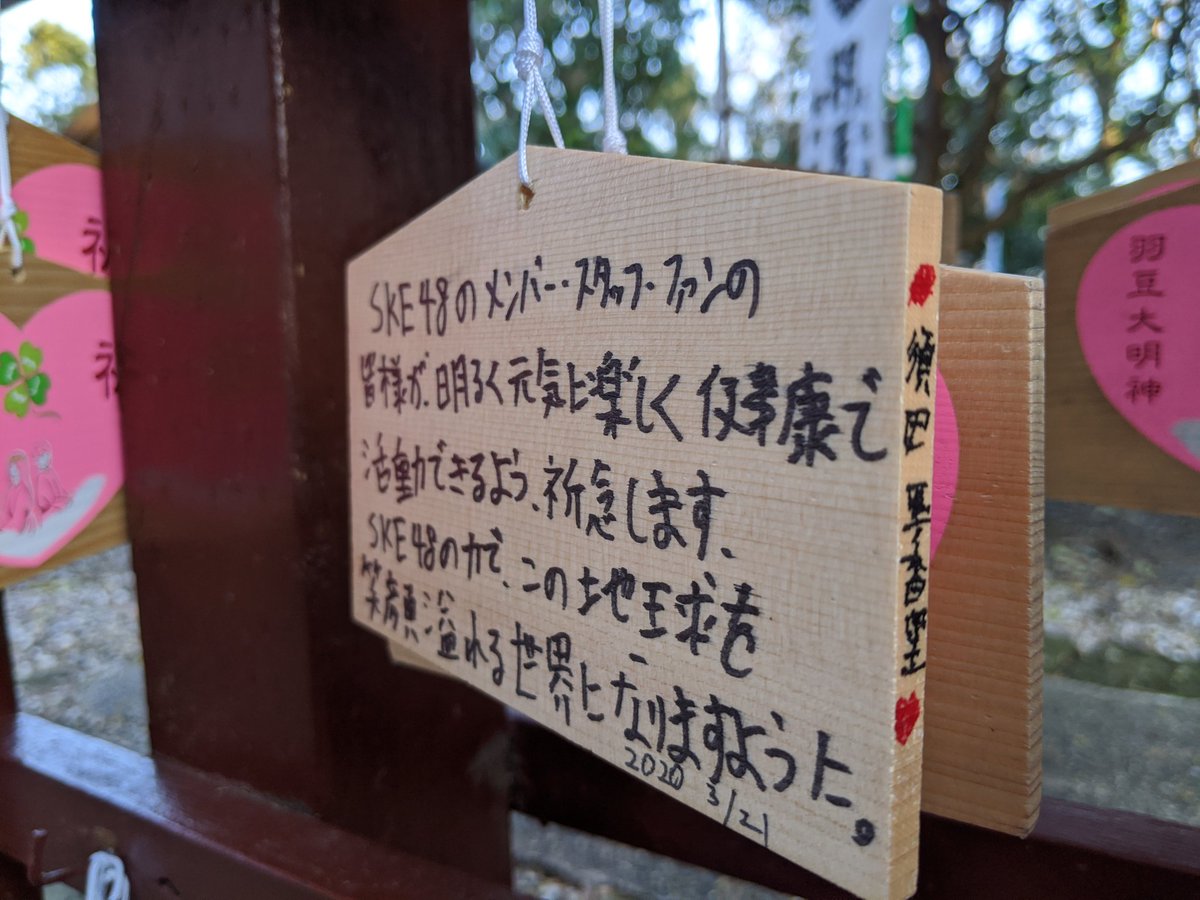 SKE48のメンバー・スタッフ・ファンの
皆様が、明るく元気に楽しく健康で
活動できるよう、祈念します、
SKE48の力で、この地球を
笑顔溢れる世界になりますように。
2020 3/21
須田 亜香里
羽豆大明神